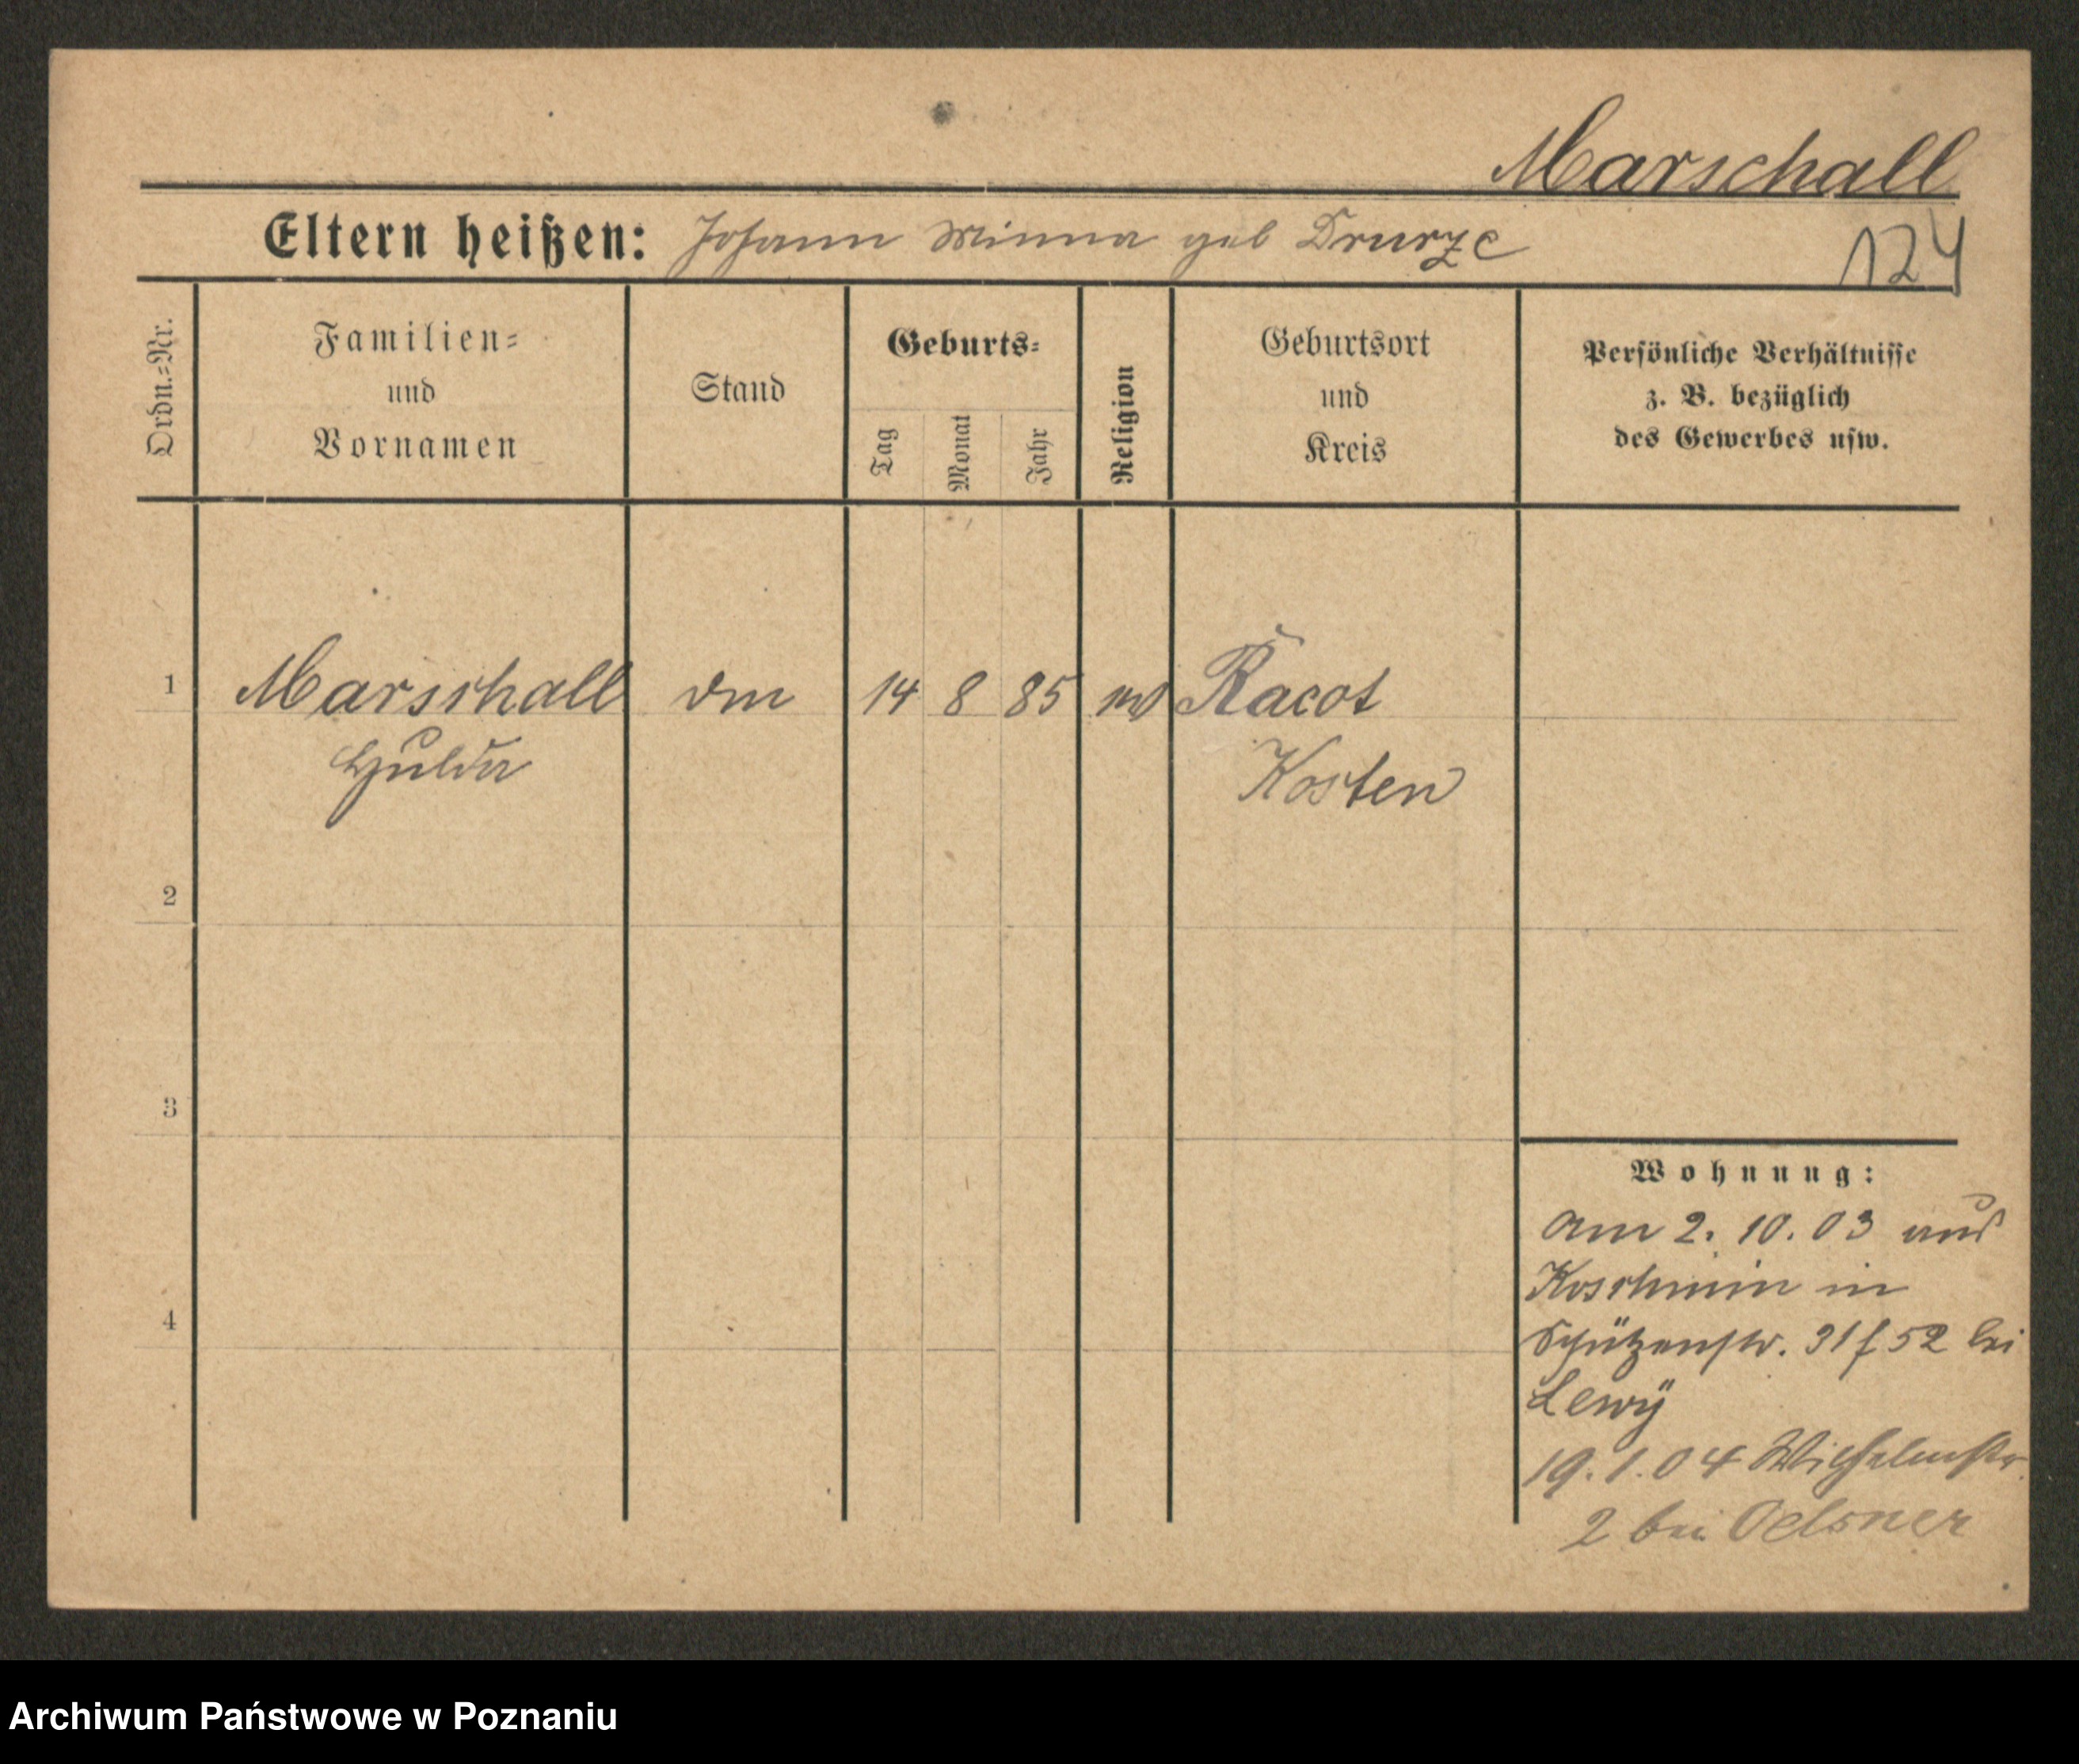 Marschall
Eltern heißen: Johann Minna geb Drurze
124
Ordn.-Nr.
Familien- und Vornamen
Stand
Geburts-
Tag
Monat
Jahr
Religion
Geburtsort und Kreis
Persönliche Verhältnisse
z. B. bezüglich
des Gewerbes usw.
1 Marschall 14 8 85 Racot
Hulda Kosten
2
3
4
Wohnung:
am 2. 10. 03 aus
Koschmin in
Schützenstr. 31 f 52 bei
Lewÿ
19. 1. 04 Wilhelmstr.
2 bei Oelsner
Archiwum Państwowe w Poznaniu